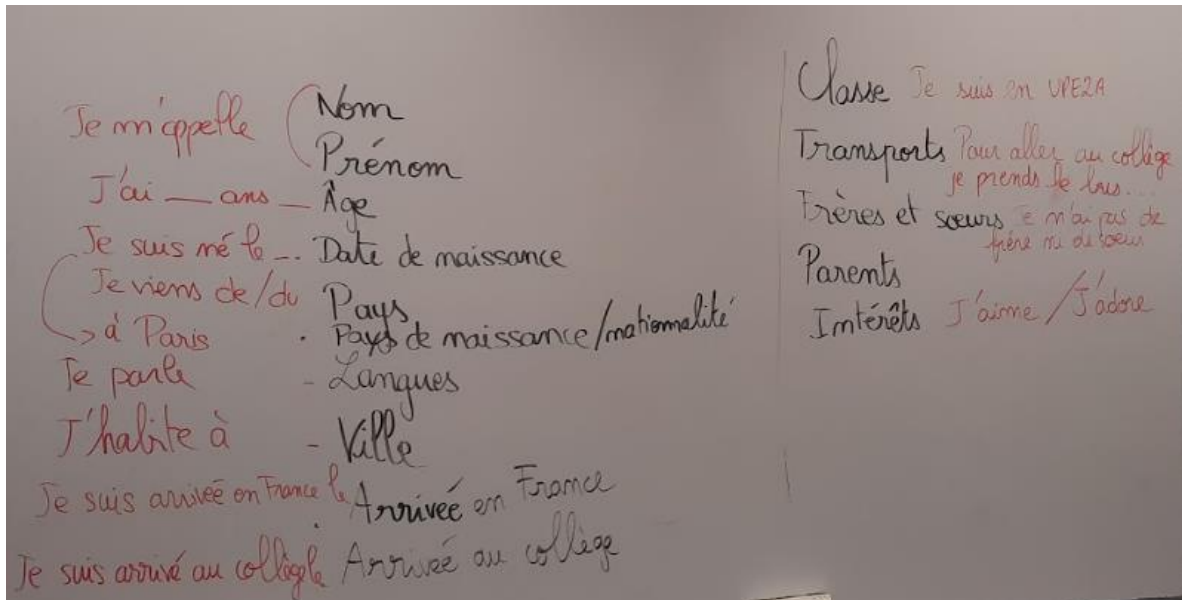 Je m'appelle Nom
Prénom
J'ai __ ans _ Âge
Je suis né le _.. Date de naissance
Je viens de/du Pays
-> à Paris . Pays de naissance/nationnalité
Je parle - Langues
J'habite à - Ville
Je suis arrivée en France le Arrivée en France
Je suis arrivé au collège le Arrivée au collège
Classe Je suis en UPE2A
Transports Pour aller au collège
je prends le bus...
Frères et sœurs Je n'ai pas de
frère ni de soeur
Parents
Intérêts J'aime / J'adore